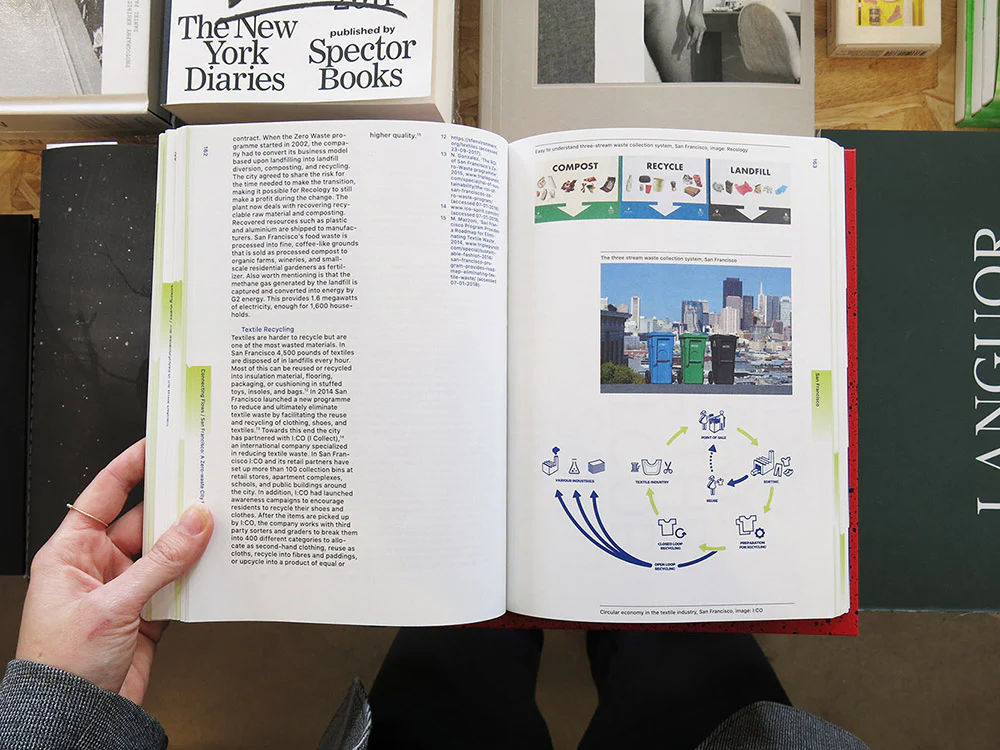 The New
York
Diaries
2011
published by
Spector
Books
162
contract. When the Zero Waste pro-
gramme started in 2002, the compa-
ny had to convert its business model
based upon landfilling into landfill
diversion, composting, and recycling.
The city agreed to share the risk for
the time needed to make the transition,
making it possible for Recology to still
make a profit during the change. The
plant now deals with recovering recy-
clable raw material and composting.
Recovered resources such as plastic
and aluminium are shipped to manufac-
turers. San Francisco's food waste is
processed into fine, coffee-like grounds
that is sold as processed compost to
organic farms, wineries, and small-
scale residential gardeners as fertil-
izer. Also worth mentioning is that the
methane gas generated by the landfill is
captured and converted into energy by
G2 energy. This provides 1.6 megawatts
of electricity, enough for 1,600 house-
holds.
Textile Recycling
Textiles are harder to recycle but are
one of the most wasted materials. In
San Francisco 4,500 pounds of textiles
are disposed of in landfills every hour.
Most of this can be reused or recycled
into insulation material, flooring,
packaging, or cushioning in stuffed
toys, insoles, and bags.12 In 2014 San
Francisco launched a new programme
to reduce and ultimately eliminate
textile waste by facilitating the reuse
and recycling of clothing, shoes, and
textiles.13 Towards this end the city
has partnered with I:CO (I Collect),14
an international company specialized
in reducing textile waste. In San Fran-
cisco I:CO and its retail partners have
set up more than 100 collection bins at
retail stores, apartment complexes,
schools, and public buildings around
the city. In addition, I:CO had launched
awareness campaigns to encourage
residents to recycle their shoes and
clothes. After the items are picked up
by I:CO, the company works with third
party sorters and graders to break them
into 400 different categories to allo-
cate as second-hand clothing, reuse as
cloths, recycle into fibres and paddings,
or upcycle into a product of equal or
higher quality.15
12 https://sfenvironment.
org/textiles (accessed
23-09-2017).
13
14
(accessed 07-01-2018).
15 M. Mazzoni, 'San Fran-
cisco Program Provides
a Roadmap for Elimi-
nating Textile Waste,'
2014, www.triplepundit.
com/special/sustain-
able-fashion-2014/
san-francisco-pro-
gram-provides-road-
map-eliminating-tex-
tile-waste/ (accessed
07-01-2018).
Connecting Flows / San Francisco: A Zero-waste City
Easy to understand three-stream waste collection system, San Francisco, image: Recology
163
COMPOST
RECYCLE
LANDFILL
The three stream waste collection system, San Francisco
San Francisco
POINT OF SALE
VARIOUS INDUSTRIES
TEXTILE INDUSTRY
SORTING
REUSE
CLOSED LOOP
RECYCLING
PREPARATION
FOR RECYCLING
OPEN LOOP
RECYCLING
Circular economy in the textile industry, San Francisco, image: I:CO
LANGUOR